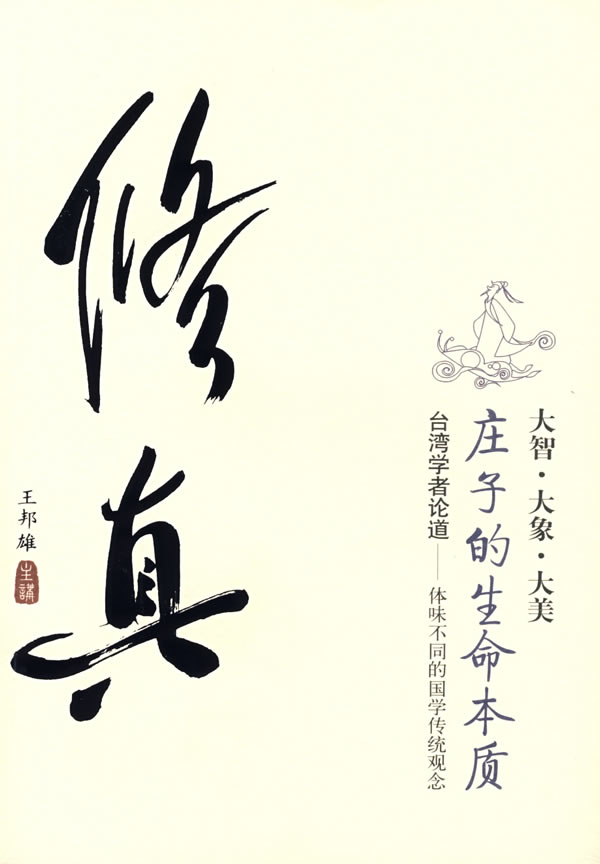 修真
大智·大象·大美
庄子的生命本质
台湾学者论道——体味不同的国学传统观念
王邦雄
主讲